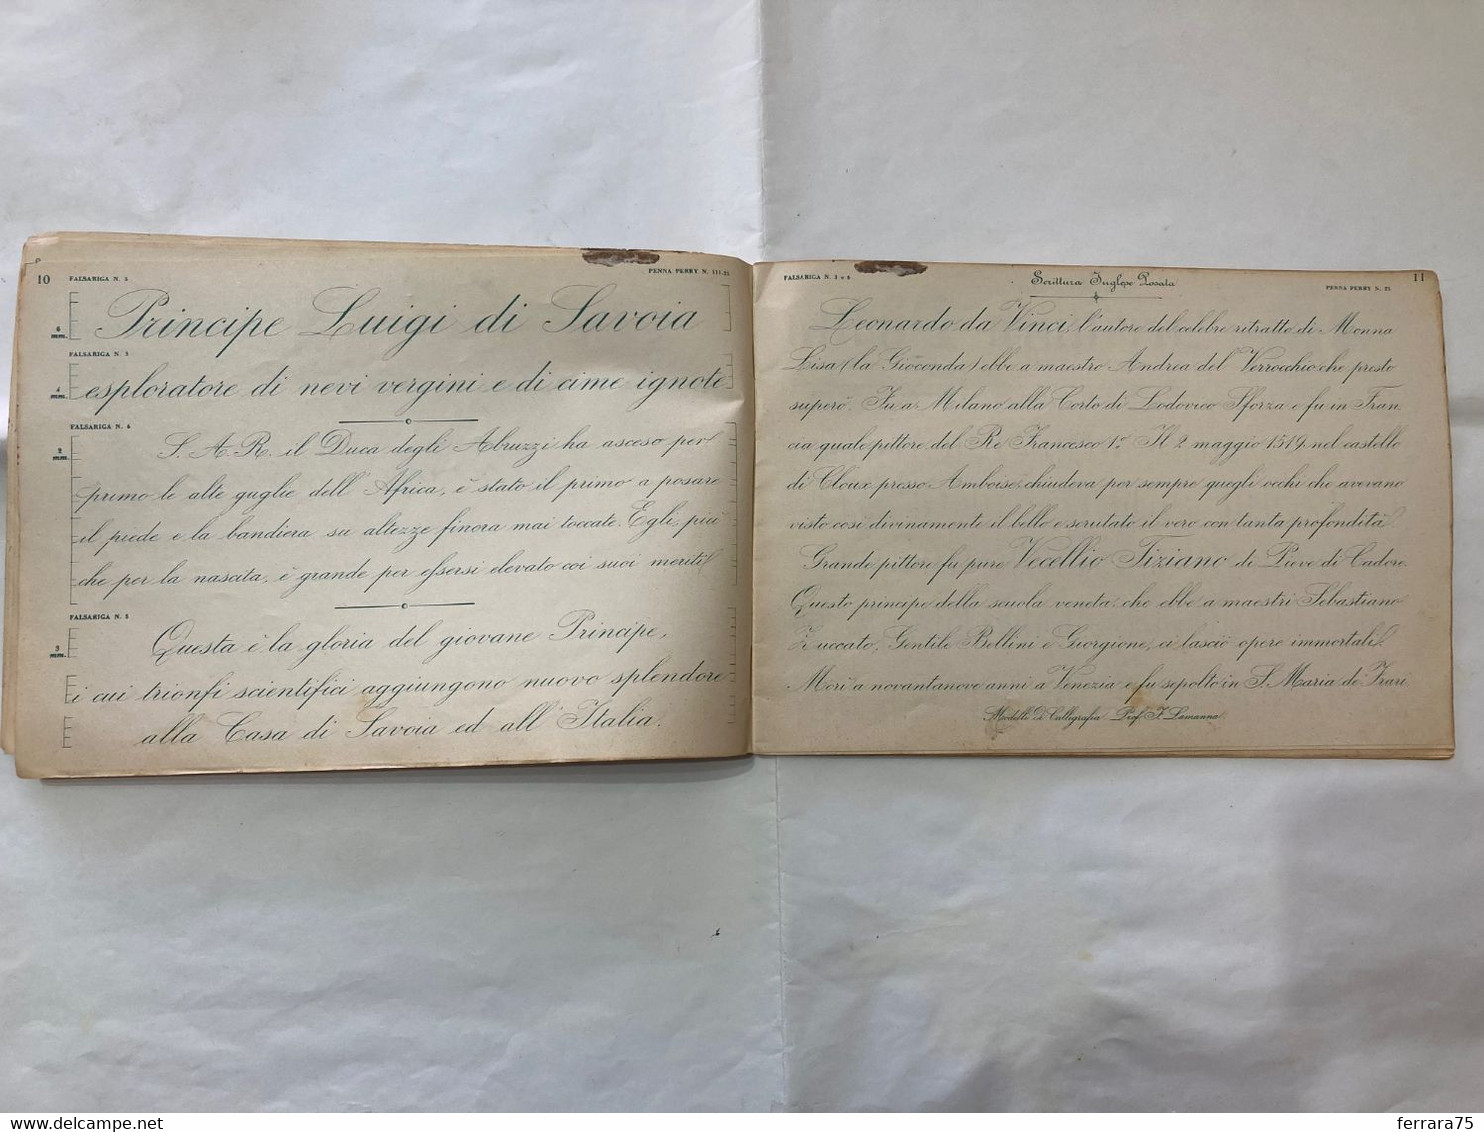 10 FALSARIGA N. 5 PENNA PERRY N. 111-25
6 mm.
Principe Luigi di Savoia
FALSARIGA N. 5
4 mm.
esploratore di nevi vergini e di cime ignote
FALSARIGA N. 6
2 mm.
S. A. R. il Duca degli Abruzzi ha asceso per
primo le alte guglie dell'Africa, è stato il primo a posare
il piede e la bandiera su altezze finora mai toccate. Egli, più
che per la nascita, è grande per essersi elevato coi suoi meriti
FALSARIGA N. 5
3 mm.
Questa è la gloria del giovane Principe,
i cui trionfi scientifici aggiungono nuovo splendore
alla Casa di Savoia ed all'Italia.
FALSARIGA N. 5 e 6 Scrittura Inglese Posata 11
PENNA PERRY N. 25
Leonardo da Vinci, l'autore del celebre ritratto di Monna
Lisa (la Gioconda) ebbe a maestro Andrea del Verrocchio che presto
superò. Fu a Milano alla Corte di Lodovico Sforza e fu in Fran
cia quale pittore del Re Francesco 1º. Il 2 maggio 1519, nel castello
di Cloux presso Amboise, chiudeva per sempre quegli occhi che avevano
visto così divinamente il bello e scrutato il vero con tanta profondità.
Grande pittore fu pure Vecellio Tiziano di Pieve di Cadore.
Questo principe della scuola veneta, che ebbe a maestri Sebastiano
Zuccato, Gentile Bellini e Giorgione, ci lasciò opere immortali.
Morì a novantanove anni a Venezia e fu sepolto in S. Maria dei Frari
Modelli di Calligrafia - Prof. F. Lamanna.
ferrara75